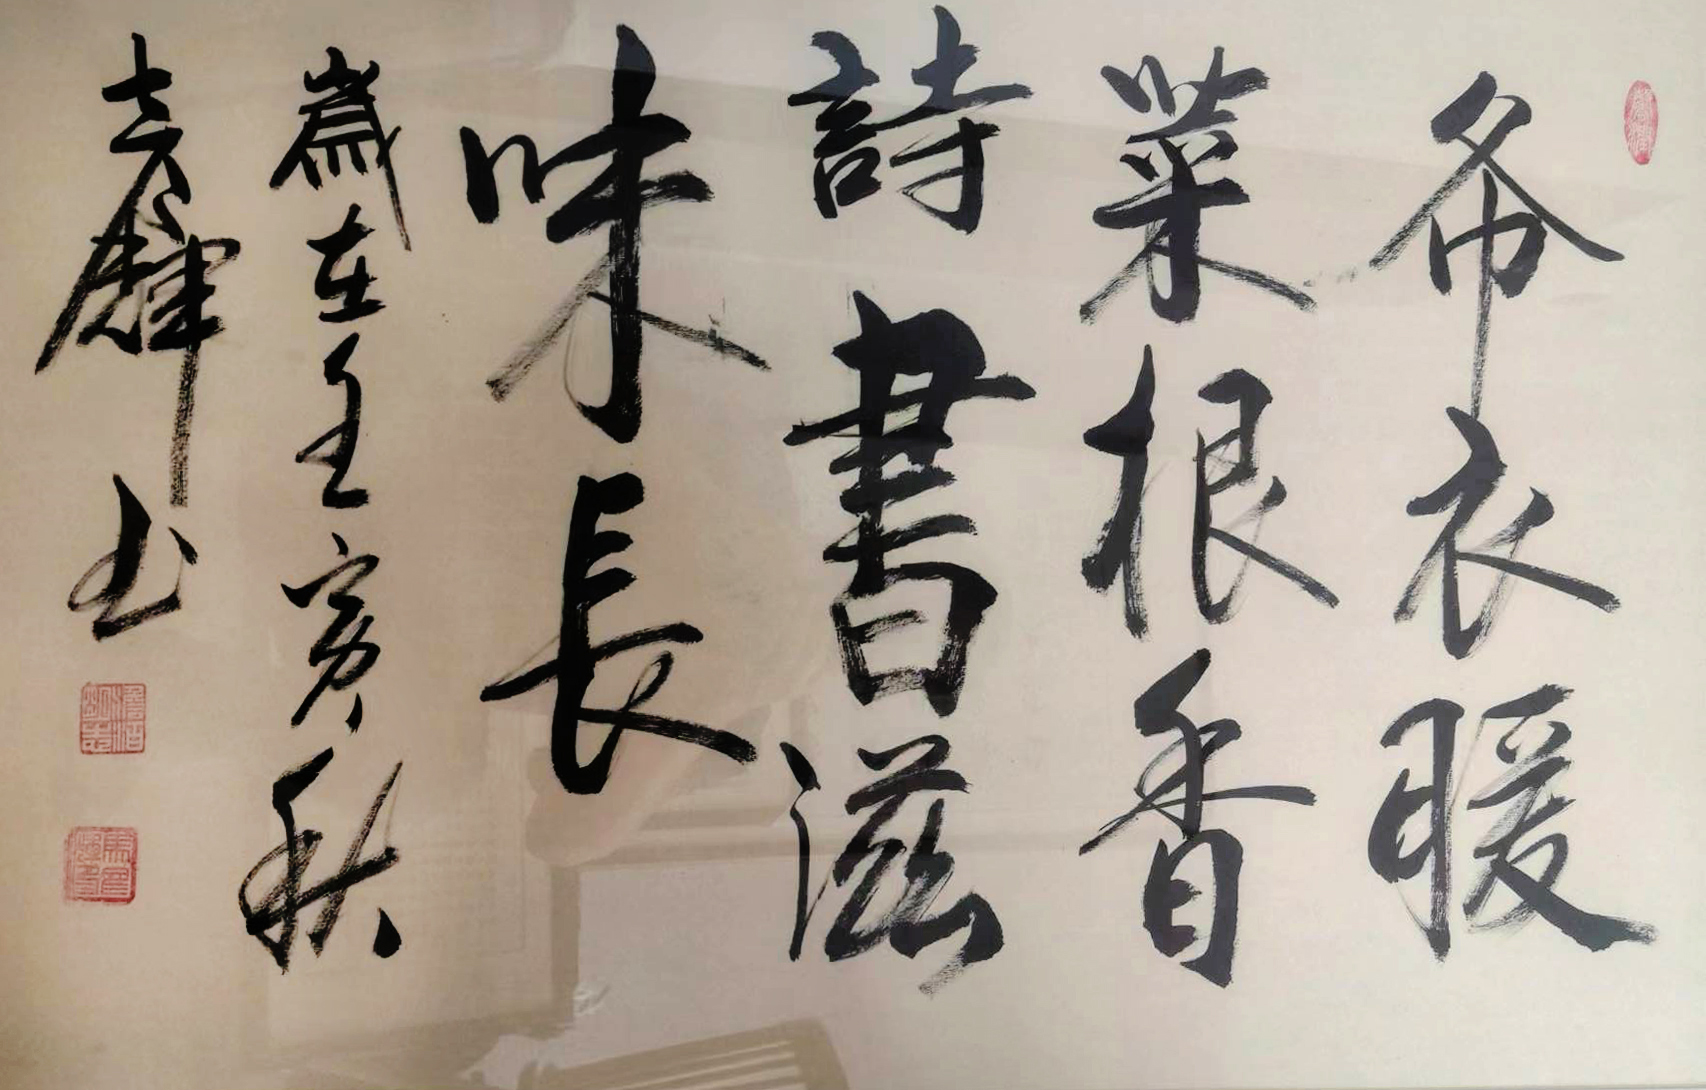 布衣暖
菜根香
詩書滋
味長
歲在壬寅秋
志輝书